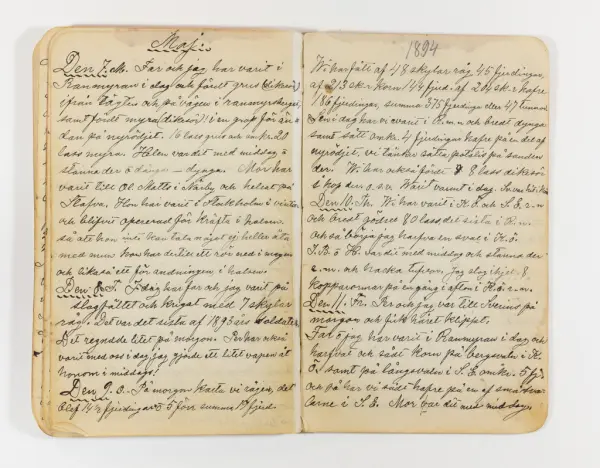 Maj.
Den 7. M. Far och jag har varit i
Ranmyran i dag och fört grus (
ifrån tägten och på vägen i ranmyrskogen,
samt fört myra( i en graf för sä-
dan på nyrödjet. 16 lass grus och omkr. 20
lass myra. Helen var det med middag å
stanna der å dynga. Mor har
varit till Ol. Matts i Närby och helsat på
Stafva. Hon har varit i Stockholm i vinter
och blifvit opererad för kräfta i halsen
så att hon inte kan tala något ej heller äta
med mun hon har dertill ett rör ned i magen
och likaså ett för andningen i halsen.
Den 8. T. I dag har far och jag varit på
slagfältet och krigat med 7 skylar
råg. Det var det sista af 1893 års soldater
Det regnade litet på morgon. Per har också
varit med oss i dag jag gjorde ett litet vapen åt
honom i middags.
Den 9. O. På morgon kasta vi rågen, det
blef 14½ fjerdingar å 5 förr summa 19 fjerd.
1894
Vi har fått af 48 skylar råg 45 fjerdingar,
af 213 sk. korn 144 fjerd. af 204 sk. hafre
186 fjerdingar, summa 375 fjerdingar eller 47 tunnor
Sen i dag har vi varit i R.m. och bredt dynga
samt sått omkr. 4 fjerdingar hafre på en del af
nyrödjet, vi tänker sätta potatis på sanden
der. Vi har också fört 8 lass
i hop der o.s.v. Warit varmt i dag.
Den 10. Th. Vi har varit i K.Ö. och S.E. z. m
och bredt gödsel 80 lass, det sista i R.m.
och så börja jag harfva en svaj i K.Ö.
J.B. å H. var dit med middag och stanna der
z. m. och hacka tufvor. Jag slog ihjel 8
kopparormar på en gång i afton i H.ö. z. m.
Den 11. Fr. Per och jag var till Sverins på
morgon och fick håret klippt.
Far å jag har varit i Ranmyran i dag och
harfvat och sådt korn på bergsvalen i K.
Ö. samt på långsvalen i S.E. omkr. 5 fj.
och på har vi sådt hafre på en af små
arne i S.E. Mor var dit med middag.